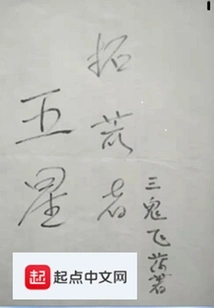 五星
拓荒者
三鬼飞落著
起点
起点中文网